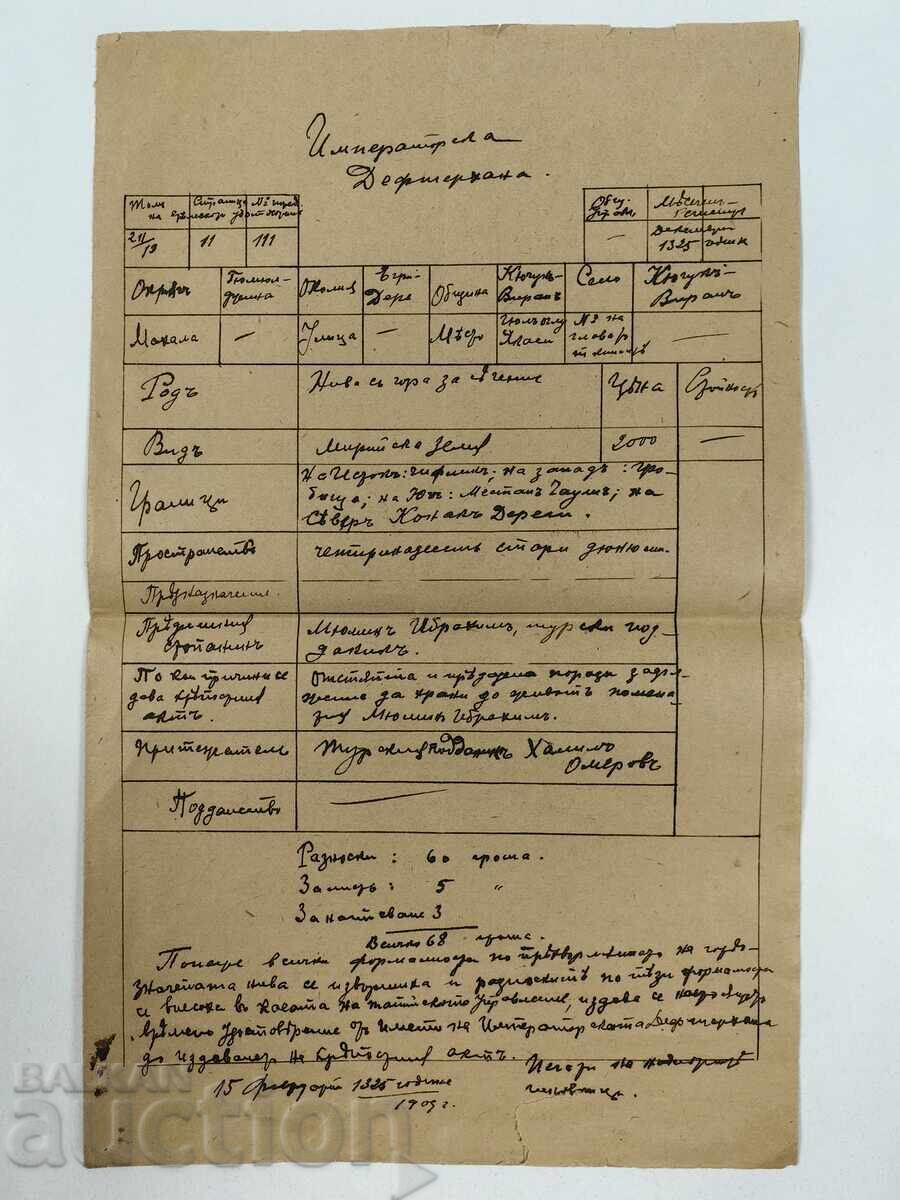 Императорска
Дефтерхана.
на врѣменното
Страница
11
111
—
Декемврий
1325 година
Окрѫгъ
Гюмюл-
джина
Околия
Егри-
Дере
Община
Кючук-
Виранъ
Село
Кючукъ-
Виранъ
Махала
—
Улица
—
Мѣсто
№ на
—
Родъ
Нива съ гора за сѣчение
Цѣна
Стойность
Видъ
Мирийска земя
2000
—
Граници
На Изток: чифликъ; на западъ: гро-
бища; на Югъ: Местанъ; на
Сѣверъ Конакъ Дереси.
Пространство
четиринадесет стари дюнюма.
Прѣдназначение
Прѣдишния
стопанинъ
Мюминъ Ибрахимъ, турски под-
даникъ.
По кои причини се
дава крѣпостния
актъ.
Отстѫпта и прѣдадена поради задъл-
жение да храни до живот помена-
тия Мюмин Ибрахимъ.
Притежатель
Турския подданикъ Халилъ
Омеровъ
Подданство
Разноски: 60 гроша.
За лист: 5 "
За написване 3
Всичко 68 гроша.
Понеже всички формалности по прѣхвърлянето на горѣ-
значената нива се извършиха и разноските по тези формалности
се внесоха въ касата на управление, издава се настоящето
врѣмено удостовѣрение отъ името на Императорската Дефтерхана
до издаванет на крѣпостния актъ.
15 февруарий 1325 година
1909 г.
Печати на
чиновници.
BALKAN
auction